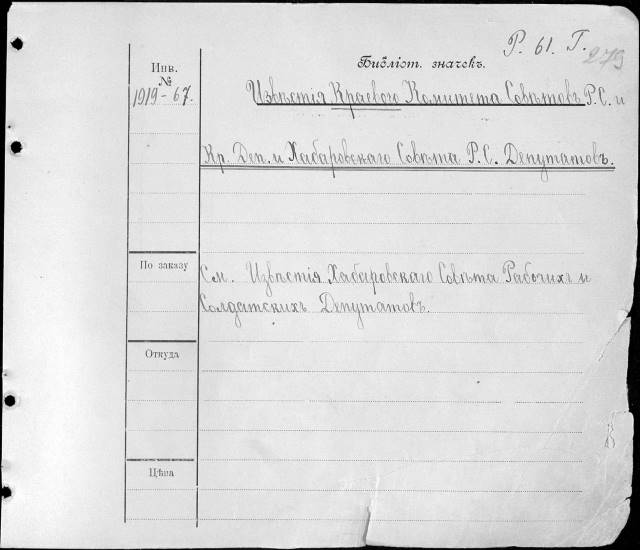 Р. 61. Г.
279
Библіот. значекъ.
Инв.
№
1919-67.
Извѣстія Краевого Комитета Совѣтовъ Р.С. и
Кр. Деп. и Хабаровскаго Совѣта Р.С. Депутатовъ.
По заказу
См. Извѣстія Хабаровскаго Совѣта Рабочихъ и
Солдатскихъ Депутатовъ.
Откуда
Цѣна